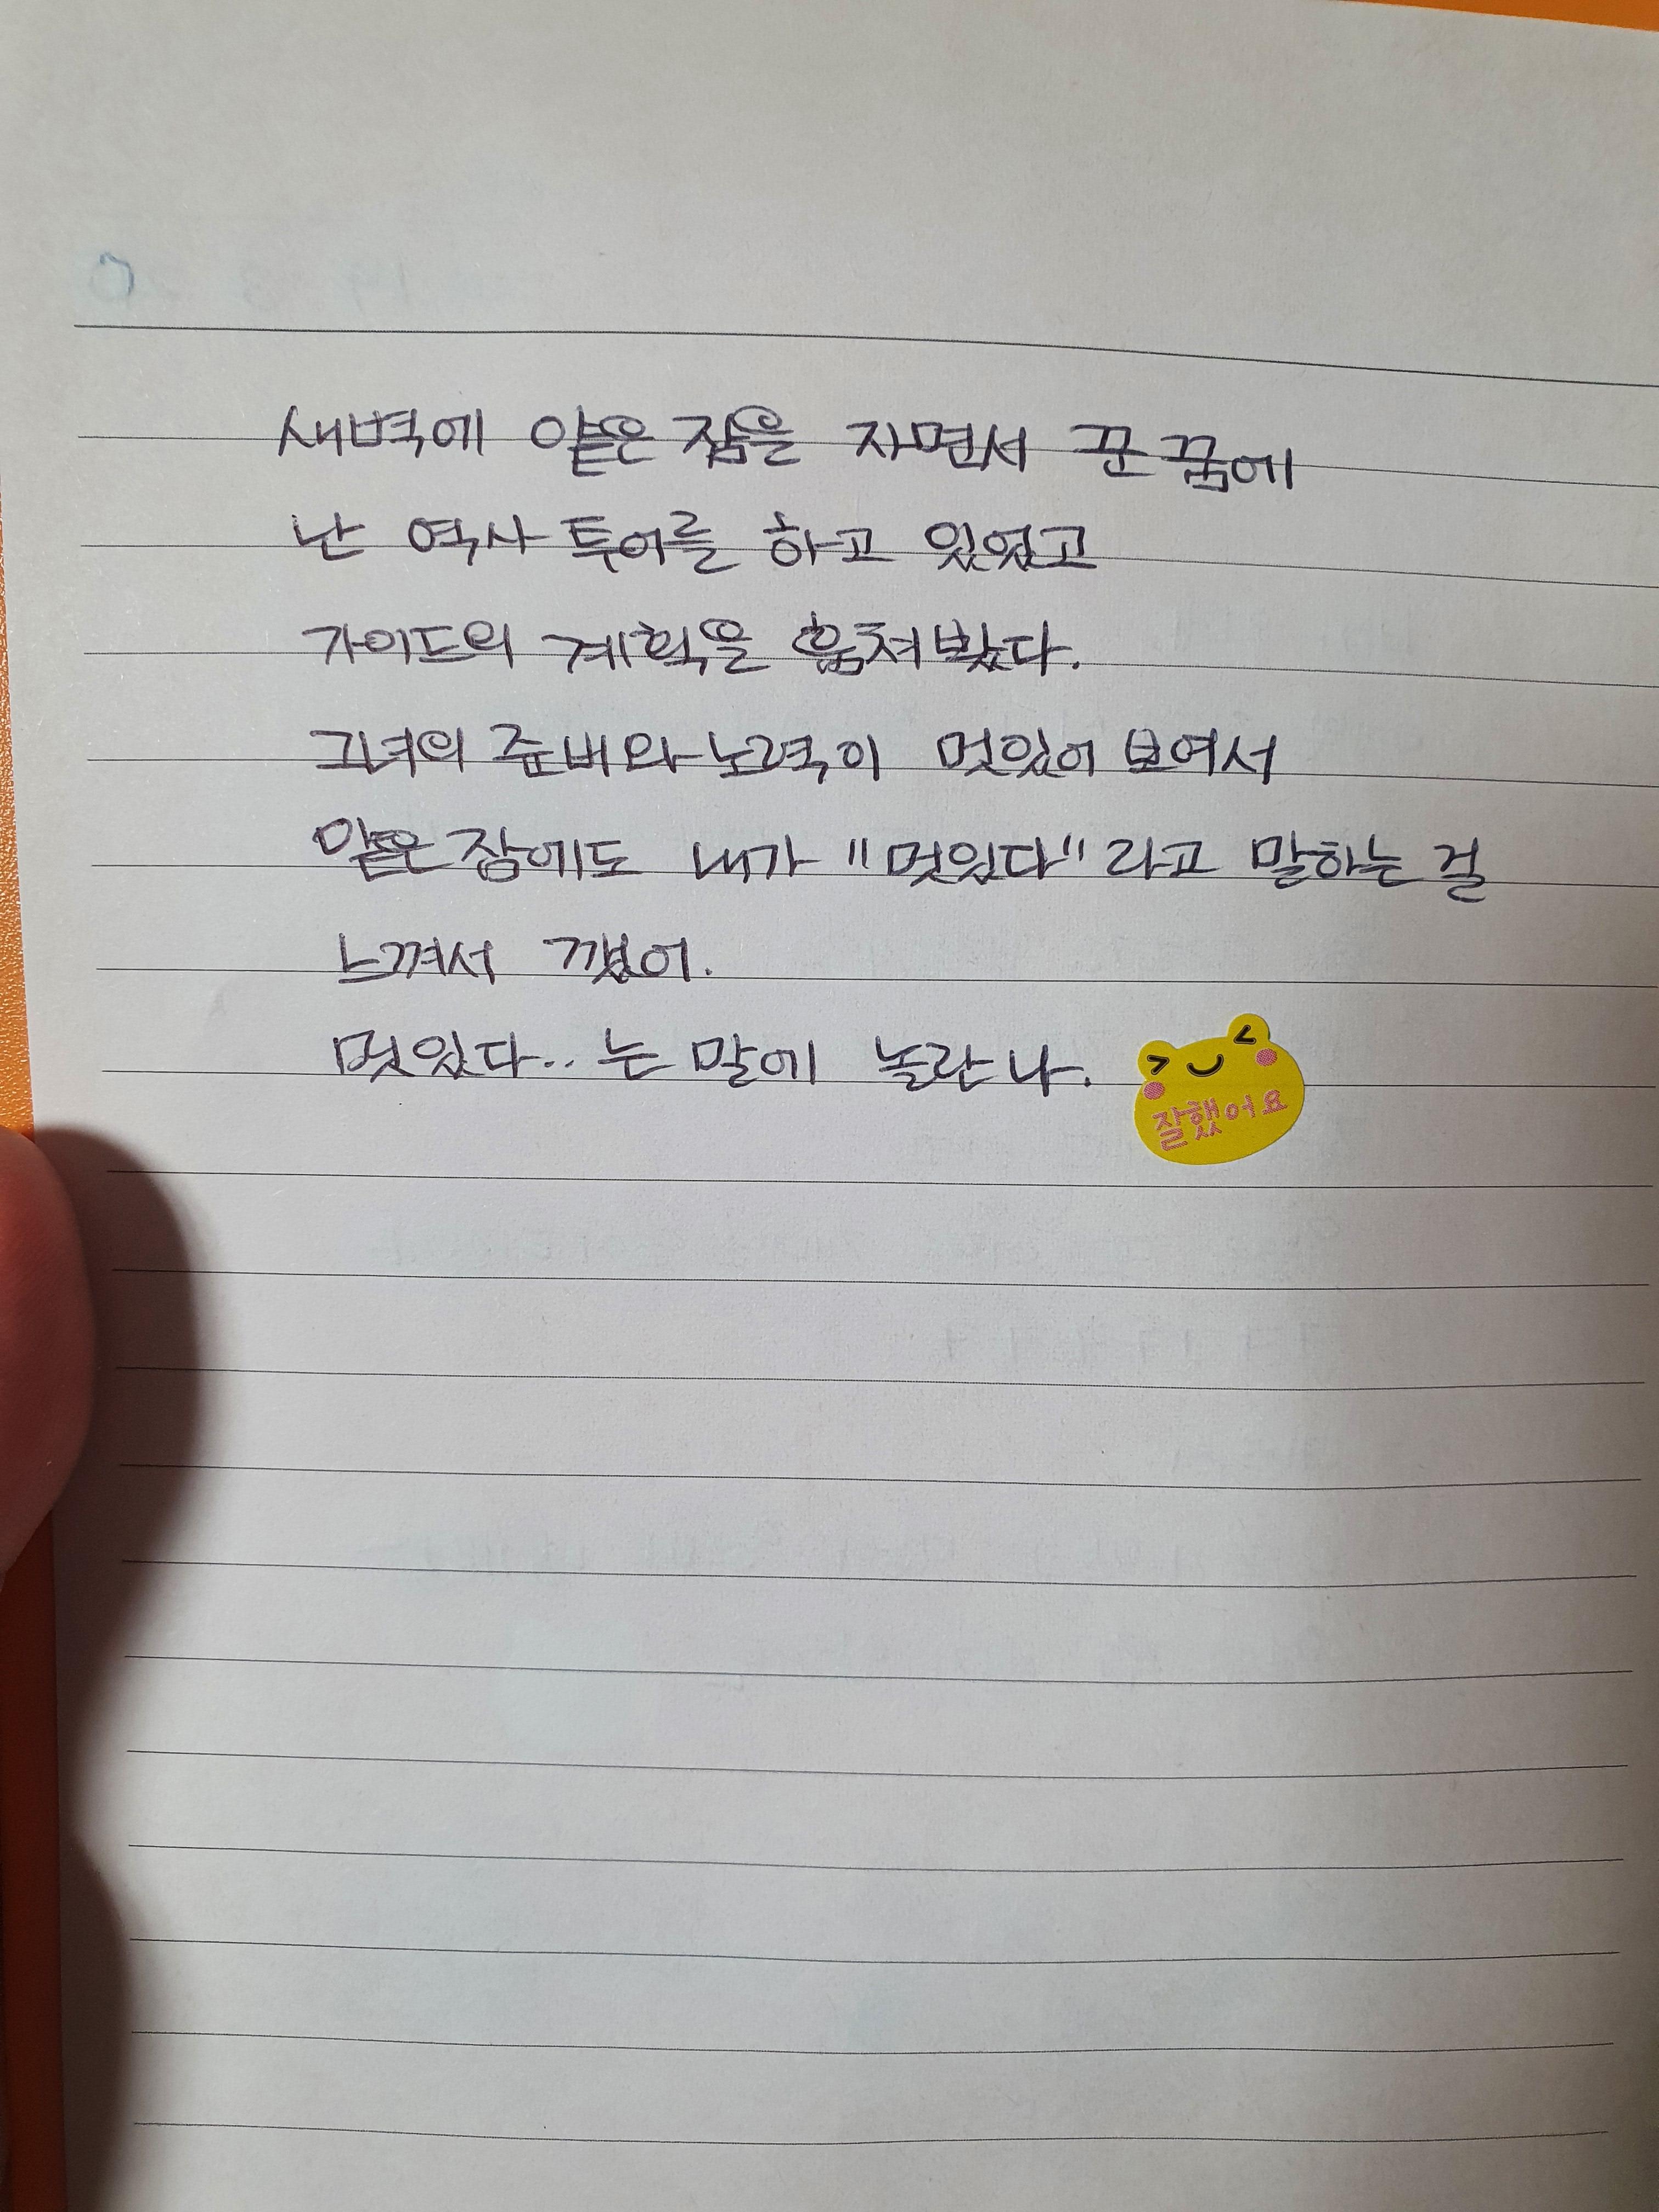 새벽에 얕은 잠을 자면서 꾼 꿈에
난 역사 투어를 하고 있었고
가이드의 계획을 훔쳐봤다.
그녀의 준비와 노력이 멋있어 보여서
얕은 잠에도 내가 "멋있다" 라고 말하는 걸
느껴서 깼어.
멋있다.. 는 말에 놀란 나.
잘했어요